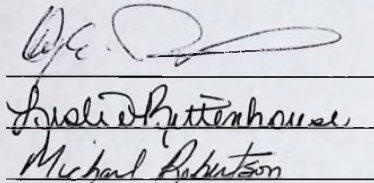 Leslie Rittenhouse
Michael Robertson